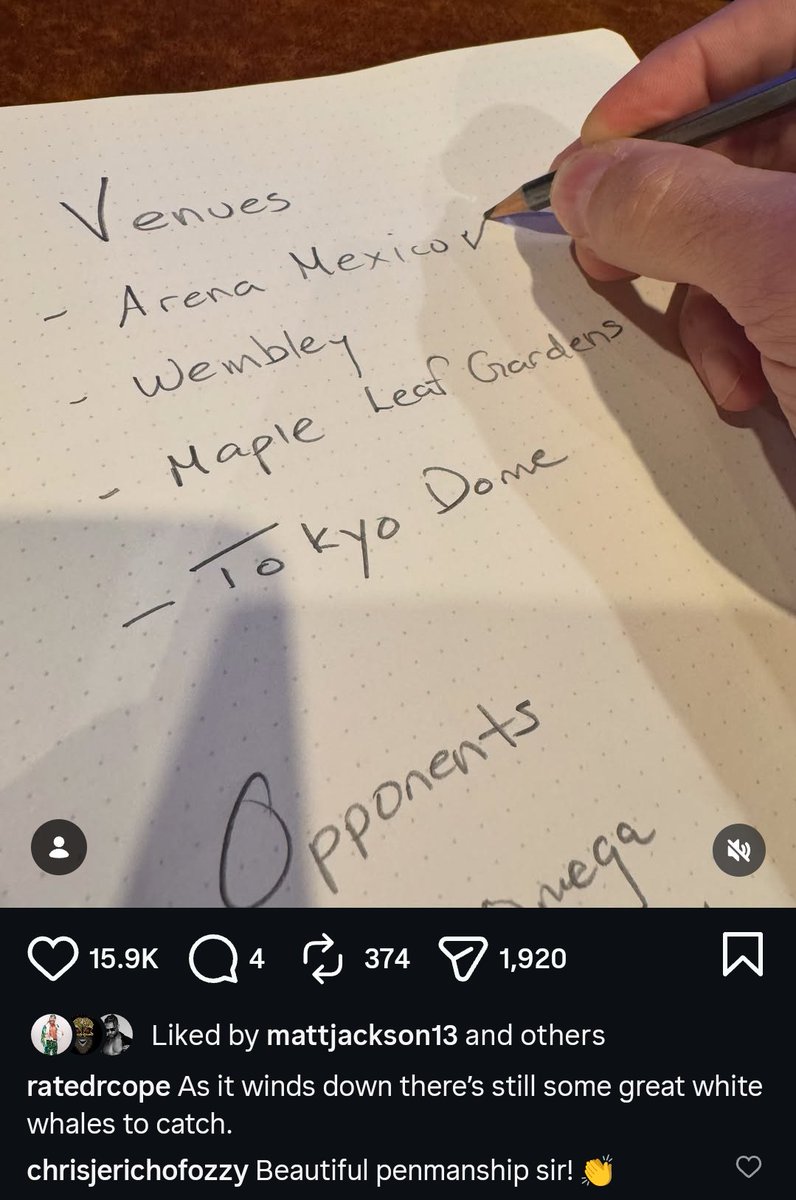 Venues
- Arena Mexico ✓
- Wembley
- Maple Leaf Gardens
- Tokyo Dome
Opponents
Omega
15.9K 4 374 1,920
Liked by mattjackson13 and others
ratedrcope As it winds down there’s still some great white
whales to catch.
chrisjerichofozzy Beautiful penmanship sir! 👏